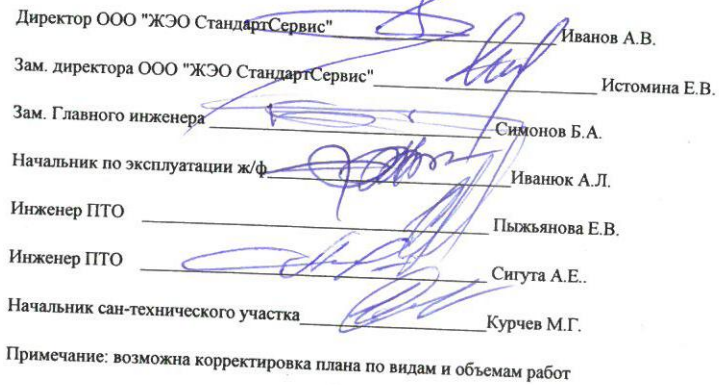 Директор ООО "ЖЭО СтандартСервис" Иванов А.В.
Зам. директора ООО "ЖЭО СтандартСервис" Истомина Е.В.
Зам. Главного инженера Симонов Б.А.
Начальник по эксплуатации ж/ф Иванюк А.Л.
Инженер ПТО Пыжьянова Е.В.
Инженер ПТО Сигута А.Е..
Начальник сан-технического участка Курчев М.Г.
Примечание: возможна корректировка плана по видам и объемам работ